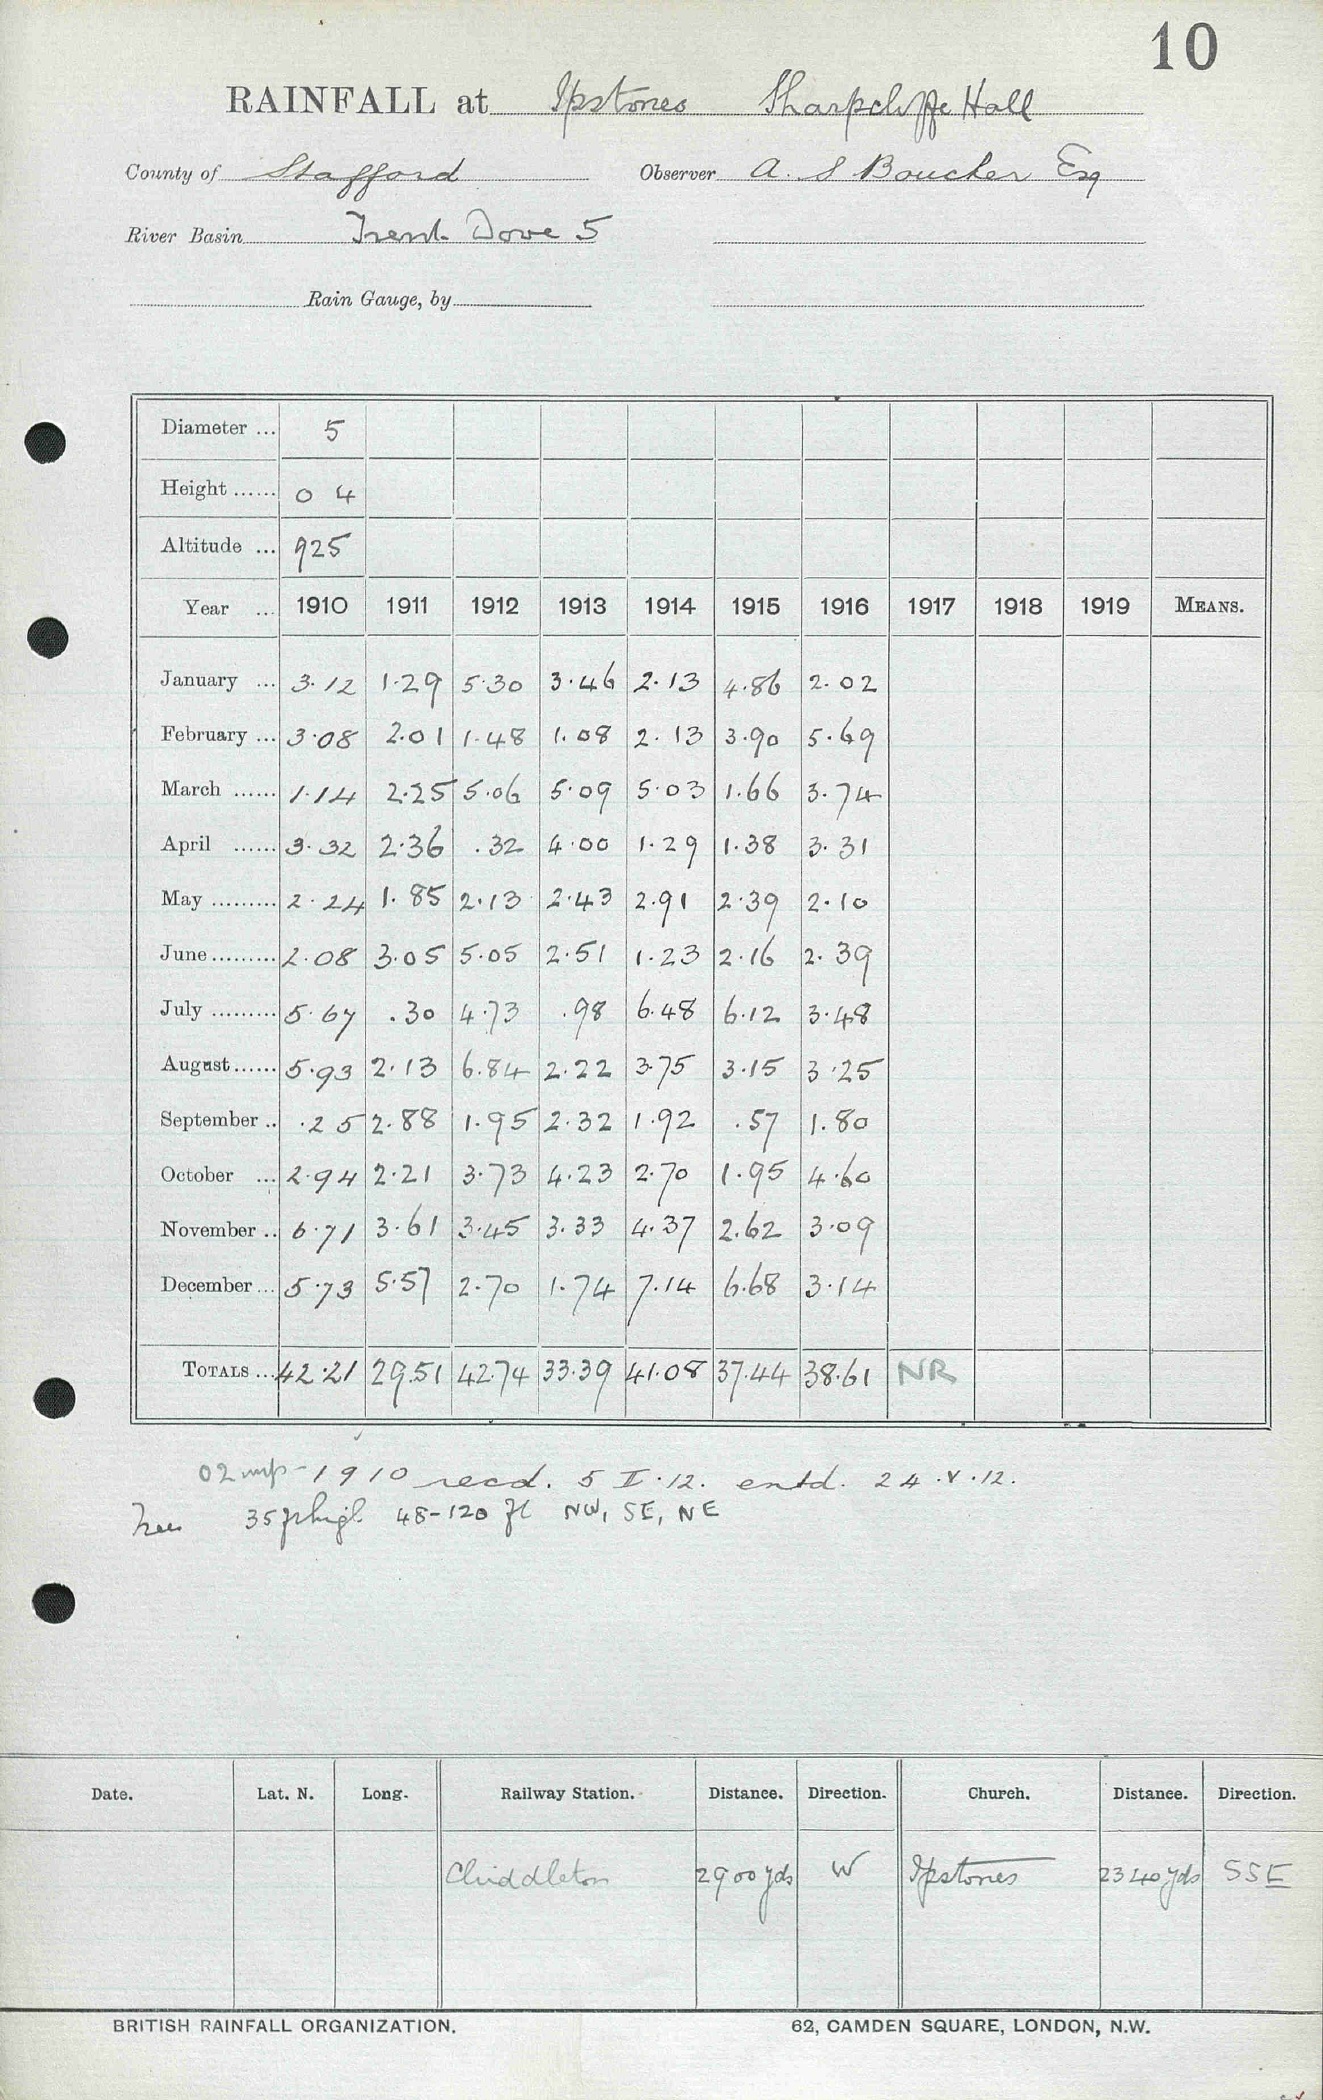 10
RAINFALL at Ipstones Sharpcliffe Hall
County of Stafford Observer A. S Boucher Esq
River Basin Trent Dove 5
Rain Gauge, by
Diameter ... 5
Height ...... 0 4
Altitude ... 925
Year ... 1910 1911 1912 1913 1914 1915 1916 1917 1918 1919 MEANS.
January ... 3.12 1.29 5.30 3.46 2.13 4.86 2.02
February ... 3.08 2.01 1.48 1.08 2.13 3.90 5.69
March ...... 1.14 2.25 5.06 5.09 5.03 1.66 3.74
April ...... 3.32 2.36 .32 4.00 1.29 1.38 3.31
May ......... 2.24 1.85 2.13 2.43 2.91 2.39 2.10
June ......... 2.08 3.05 5.05 2.51 1.23 2.16 2.39
July ......... 5.67 .30 4.73 .98 6.48 6.12 3.48
August ...... 5.93 2.13 6.84 2.22 3.75 3.15 3.25
September .. .25 2.88 1.95 2.32 1.92 .57 1.80
October ... 2.94 2.21 3.73 4.23 2.70 1.95 4.60
November .. 6.71 3.61 3.45 3.33 4.37 2.62 3.09
December ... 5.73 5.57 2.70 1.74 7.14 6.68 3.14
TOTALS ... 42.21 29.51 42.74 33.39 41.08 37.44 38.61 NR
1910 recd. 5 II.12. entd. 24.V.12.
Trees 35 ft high 48-120 ft NW, SE, NE
Date. Lat. N. Long. Railway Station. Distance. Direction. Church. Distance. Direction.
Cheddleton 2900 yds W Ipstones 2340 yds SSE
BRITISH RAINFALL ORGANIZATION. 62, CAMDEN SQUARE, LONDON, N.W.